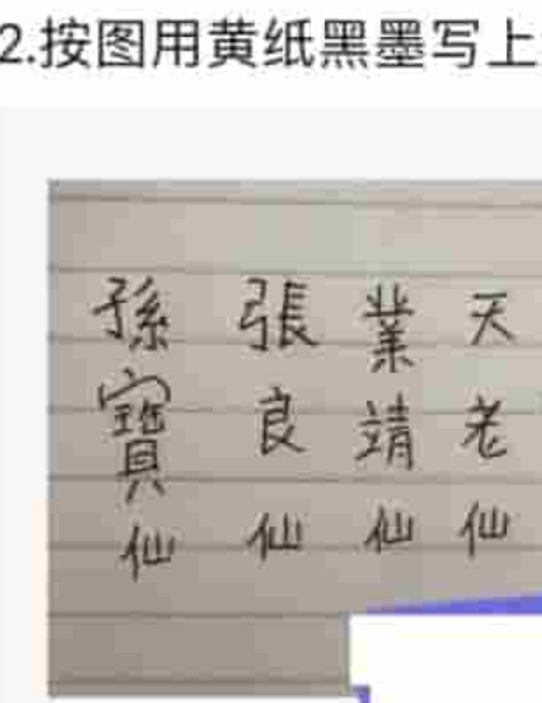 2.按图用黄纸黑墨写上
天老仙
業靖仙
張良仙
孫寶仙